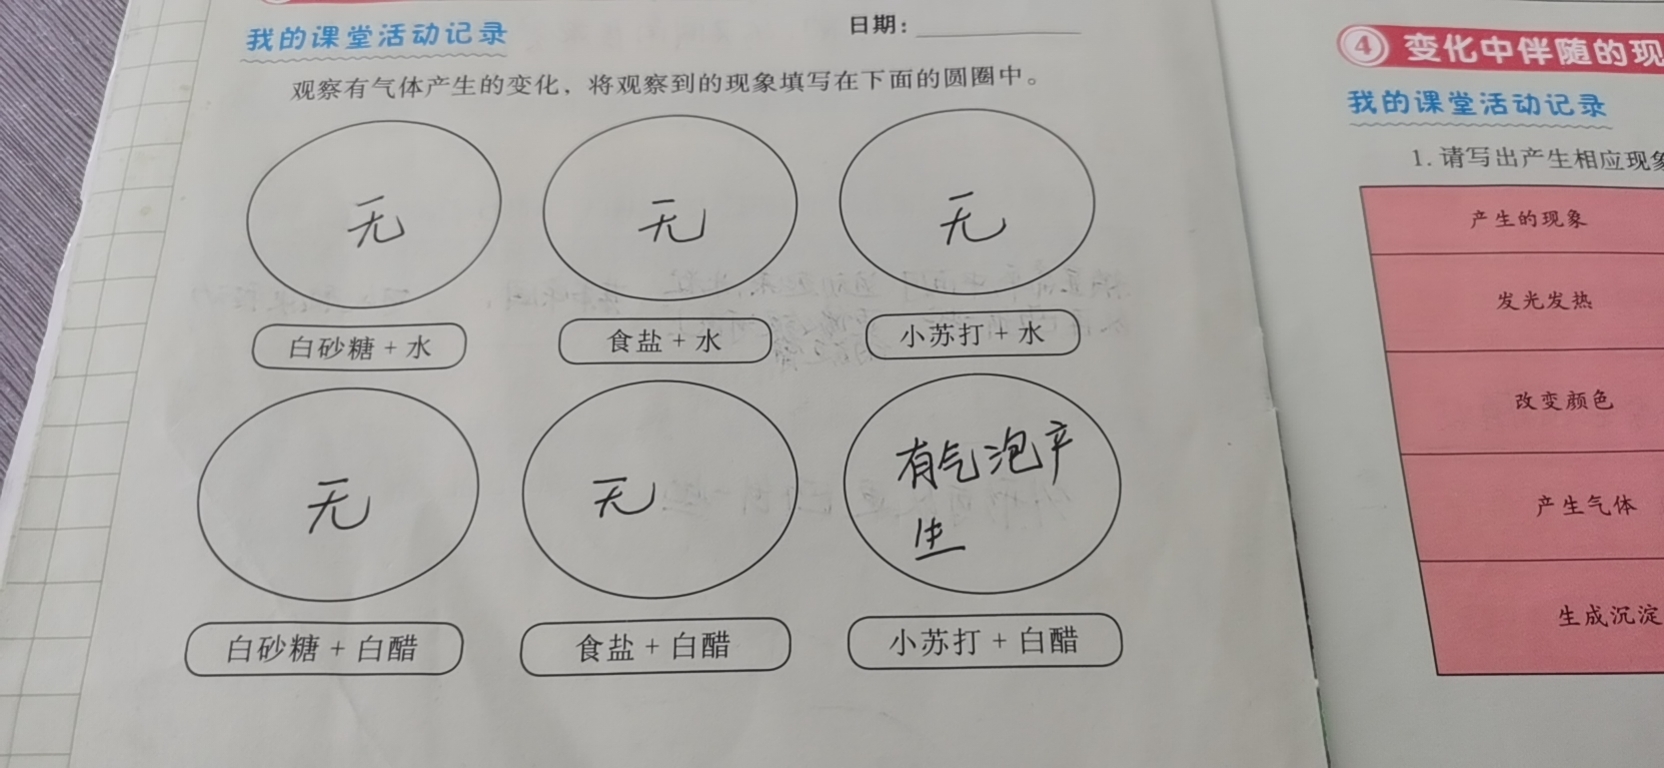 我的课堂活动记录
日期：
观察有气体产生的变化，将观察到的现象填写在下面的圆圈中。
无 无 无
白砂糖 + 水 食盐 + 水 小苏打 + 水
无 无 有气泡产
生
白砂糖 + 白醋 食盐 + 白醋 小苏打 + 白醋
4 变化中伴随的现
我的课堂活动记录
1. 请写出产生相应现象
产生的现象
发光发热
改变颜色
产生气体
生成沉淀